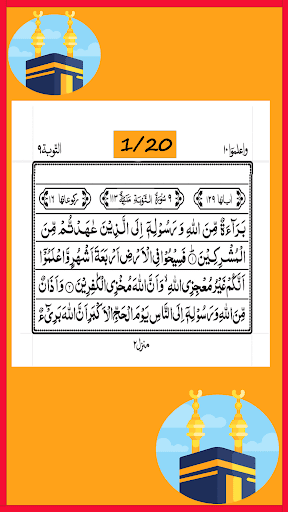 التوبة ٩
1/20
واعلموٓا ١٠
اٰیاتها ١٢٩
٩ سُوْرَةُ التَّوْبَةِ مَدَنِيَّةٌ ١١٣
ركوعاتها ١٦
بَرَآءَةٌ مِّنَ اللّٰهِ وَ رَسُوْلِهٖۤ اِلَى الَّذِيْنَ عٰهَدْتُّمْ مِّنَ
الْمُشْرِكِيْنَ ۝١ فَسِيْحُوْا فِى الْاَرْضِ اَرْبَعَةَ اَشْهُرٍ وَّاعْلَمُوْۤا
اَنَّكُمْ غَيْرُ مُعْجِزِى اللّٰهِ ۙ وَاَنَّ اللّٰهَ مُخْزِى الْكٰفِرِيْنَ ۝٢ وَاَذَانٌ
مِّنَ اللّٰهِ وَ رَسُوْلِهٖۤ اِلَى النَّاسِ يَوْمَ الْحَجِّ الْاَكْبَرِ اَنَّ اللّٰهَ بَرِىْٓءٌ
منزل ٢